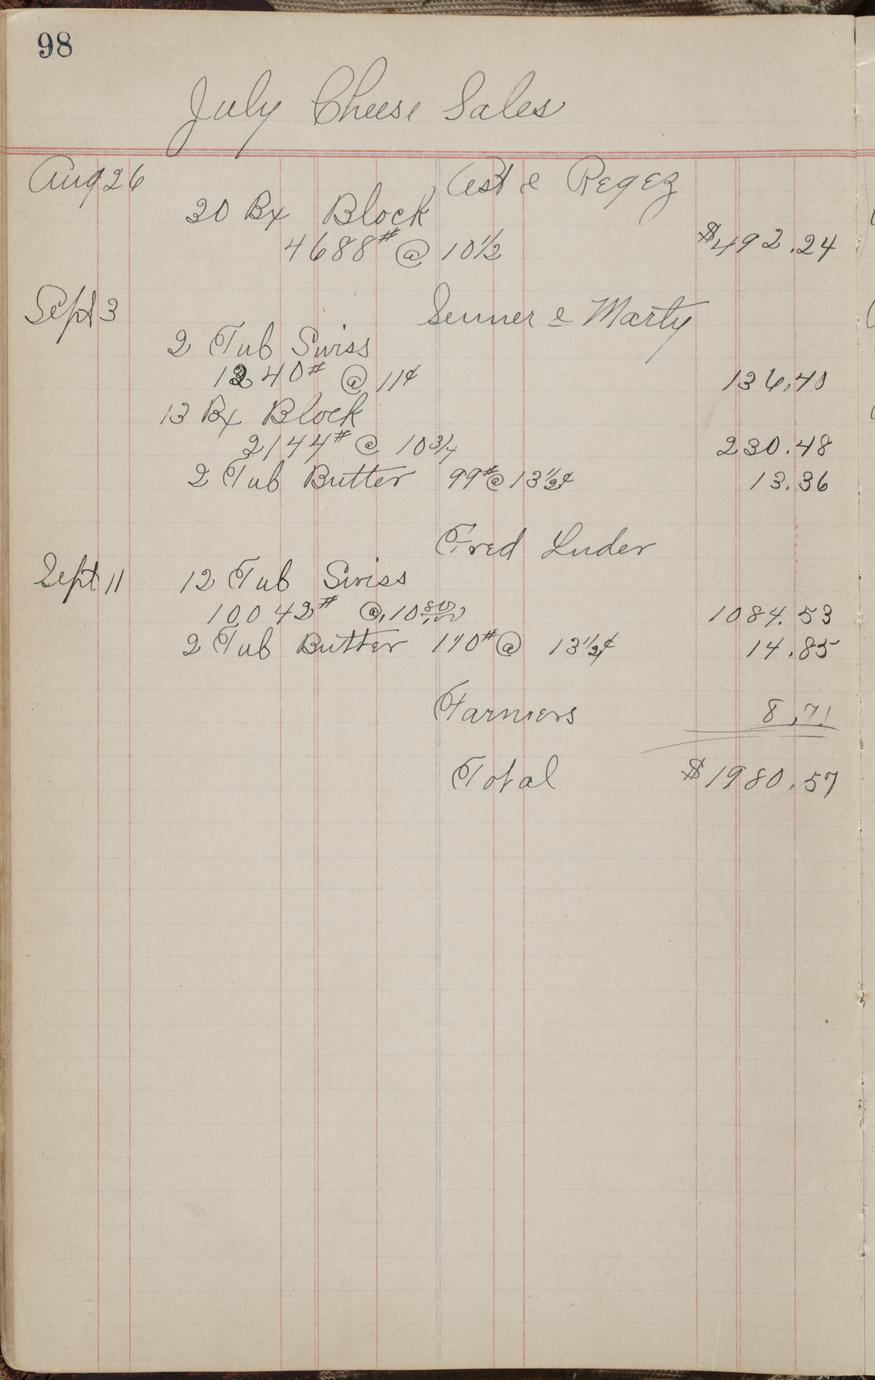 98
July Cheese Sales
Aug 26 Abst & Regez
20 Bx Block
4688# @ 10 1/2 $492.24
Sept 3 Senner & Marty
2 Tub Swiss
1240# @ 11¢ 136.40
13 Bx Block
2144# @ 10 3/4 230.48
2 Tub Butter 99# @ 13 1/2¢ 13.36
Fred Luder
Sept 11 12 Tub Swiss
10042# @ 10 80/100 1084.53
2 Tub Butter 110# @ 13 1/2¢ 14.85
Farmers 8.71
Total $1980.57